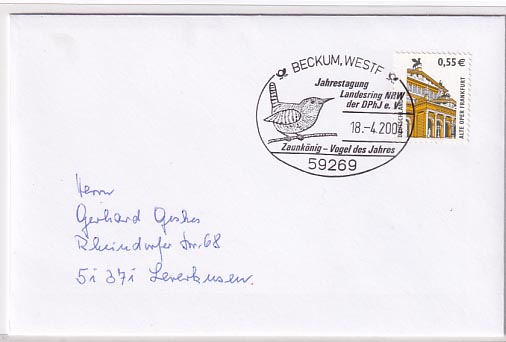 BECKUM, WESTF
Jahrestagung
Landesring NRW
der DPhJ e. V.
18.-4.200
Zaunkönig - Vogel des Jahres
59269
0,55 €
ALTE OPER FRANKFURT
Herrn
Gerhard
Rheindorfer Str. 68
51371 Leverkusen.